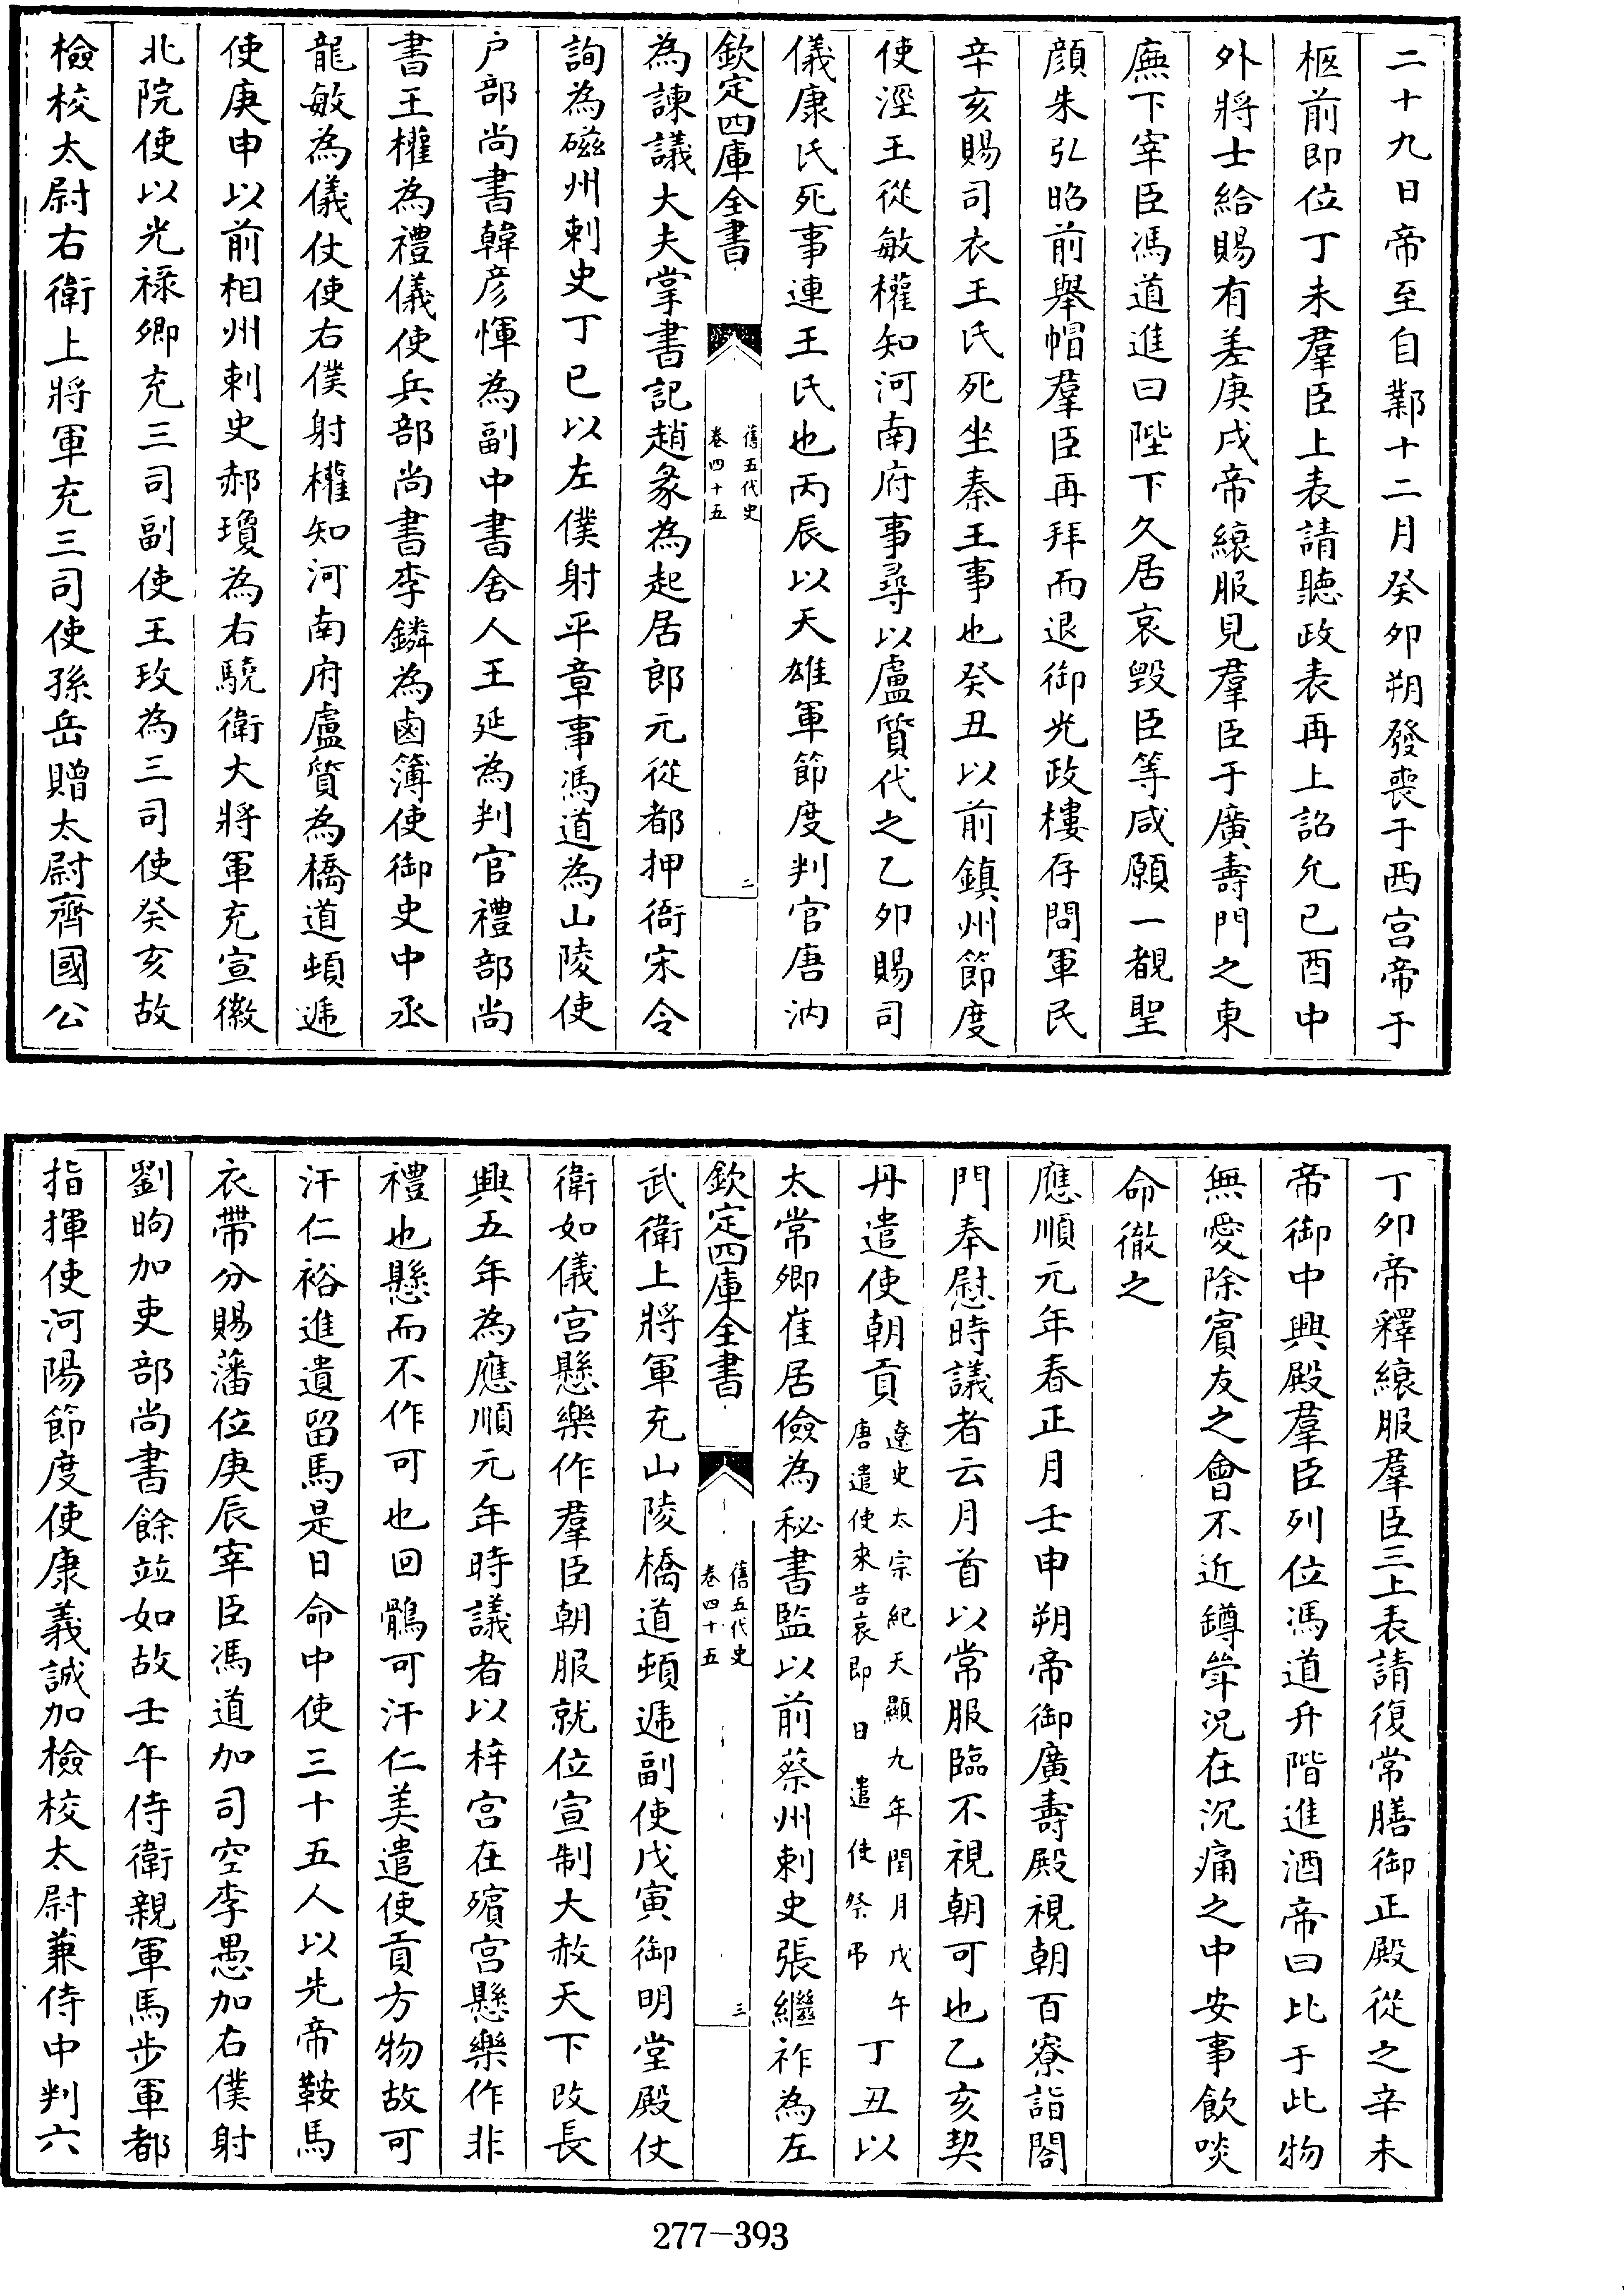 二十九日帝至自鄴十二月癸卯朔發喪于西宫帝于
柩前即位丁未羣臣上表請聽政表再上詔允已酉中
外將士給賜有差庚戌帝縗服見羣臣于廣壽門之東
廡下宰臣馮道進曰陛下久居哀毀臣等咸願一覩聖
顔朱弘昭前舉帽羣臣再拜而退御光政樓存問軍民
辛亥賜司衣王氏死坐秦王事也癸丑以前鎮州節度
使涇王從敏權知河南府事尋以盧質代之乙卯賜司
儀康氏死事連王氏也丙辰以天雄軍節度判官唐汭
欽定四庫全書
舊五代史
卷四十五
二
為諫議大夫掌書記趙彖為起居郎元從都押衙宋令
詢為磁州刺史丁巳以左僕射平章事馮道為山陵使
户部尚書韓彦惲為副中書舍人王延為判官禮部尚
書王權為禮儀使兵部尚書李鏻為鹵簿使御史中丞
龍敏為儀仗使右僕射權知河南府盧質為橋道頓遞
使庚申以前相州刺史郝瓊為右驍衛大將軍充宣徽
北院使以光禄卿充三司副使王玫為三司使癸亥故
檢校太尉右衛上將軍充三司使孫岳贈太尉齊國公
丁卯帝釋縗服羣臣三上表請復常膳御正殿從之辛未
帝御中興殿羣臣列位馮道升階進酒帝曰比于此物
無愛除賓友之會不近罇斝况在沉痛之中安事飲啖
命徹之
應順元年春正月壬申朔帝御廣壽殿視朝百寮詣閤
門奉慰時議者云月首以常服臨不視朝可也乙亥契
丹遣使朝貢遼史太宗紀天顯九年閏月戊午唐遣使來告哀即日遣使祭弔丁丑以
太常卿崔居儉為秘書監以前蔡州刺史張繼祚為左
欽定四庫全書
舊五代史
卷四十五
三
武衛上將軍充山陵橋道頓遞副使戊寅御明堂殿仗
衛如儀宫懸樂作羣臣朝服就位宣制大赦天下改長
興五年為應順元年時議者以梓宫在殯宫懸樂作非
禮也懸而不作可也回鶻可汗仁美遣使貢方物故可
汗仁裕進遺留馬是日命中使三十五人以先帝鞍馬
衣帶分賜藩位庚辰宰臣馮道加司空李愚加右僕射
劉昫加吏部尚書餘竝如故壬午侍衛親軍馬步軍都
指揮使河陽節度使康義誠加檢校太尉兼侍中判六
277-393